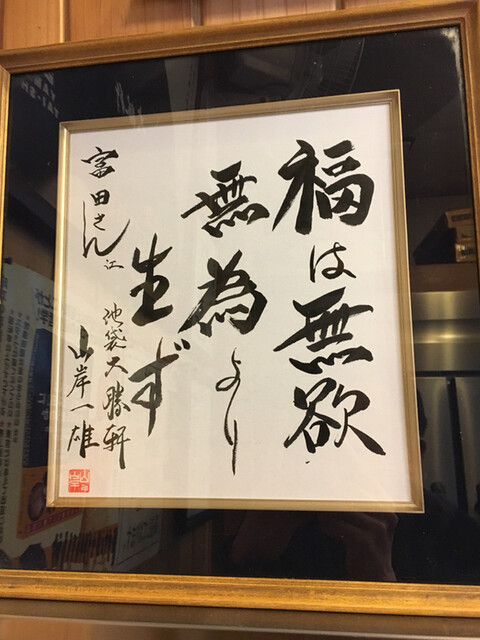 福は無欲
無為より
生ず
冨田さん江
池袋大勝軒
山岸一雄